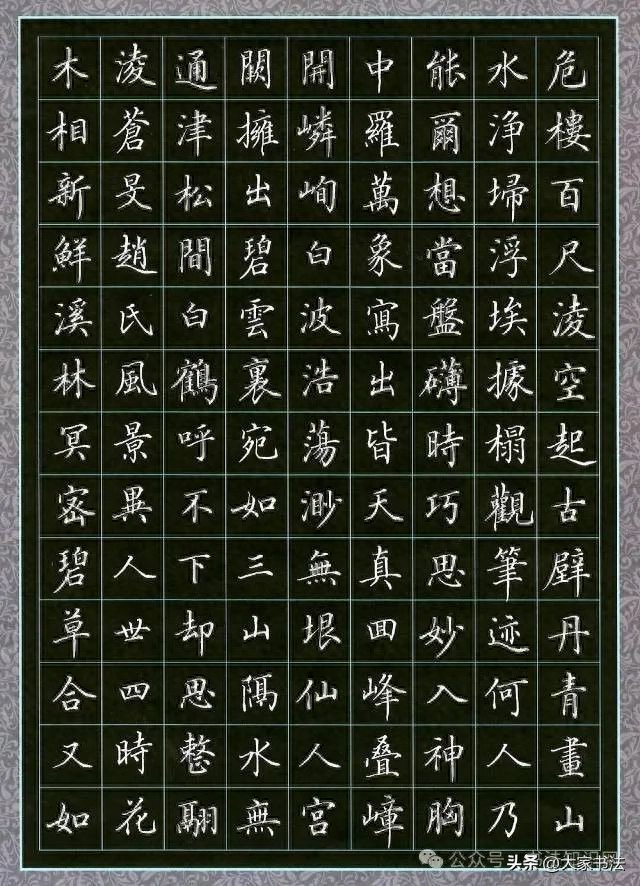 危樓百尺淩空起古壁丹青畫山
水浄埽浮埃據榻觀筆迹何人乃
能爾想當盤礴時巧思妙入神胸
中羅萬象寫出皆天真囬峰叠嶂
開嶙峋白波浩蕩渺無垠仙人宮
闕擁出碧雲裏宛如三山隔水無
通津松間白鶴呼不下却思整翮
淩蒼旻趙氏風景異人世四時花
木相新鮮溪林冥密碧草合又如
公众号·书法知识网
头条@大家书法